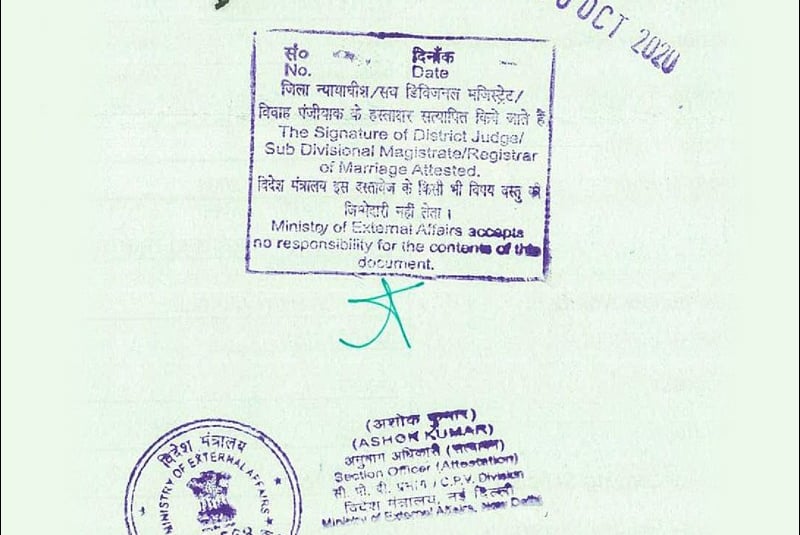 OCT 2020
सं० दिनाँक
No. Date
जिला न्यायाधीश/सव डिविजनल मजिस्ट्रेट/
विवाह पंजीयाक के हस्ताक्षर सत्यापित किये जाते हैं
The Signature of District Judge/
Sub Divisional Magistrate/Registrar
of Marriage Attested.
विदेश मंत्रालय इस दस्तावेज के किसी भी विषय वस्तु की
जिम्मेदारी नहीं लेता ।
Ministry of External Affairs accepts
no responsibility for the contents of this
document.
(अशोक कुमार)
(ASHOK KUMAR)
अनुभाग अधिकारी (सत्यापन)
Section Officer (Attestation)
सी. पी. वी. प्रभाग / C.P.V. Division
विदेश मंत्रालय, नई दिल्ली
Ministry of External Affairs, New Delhi
विदेश मंत्रालय
MINISTRY OF EXTERNAL AFFAIRS